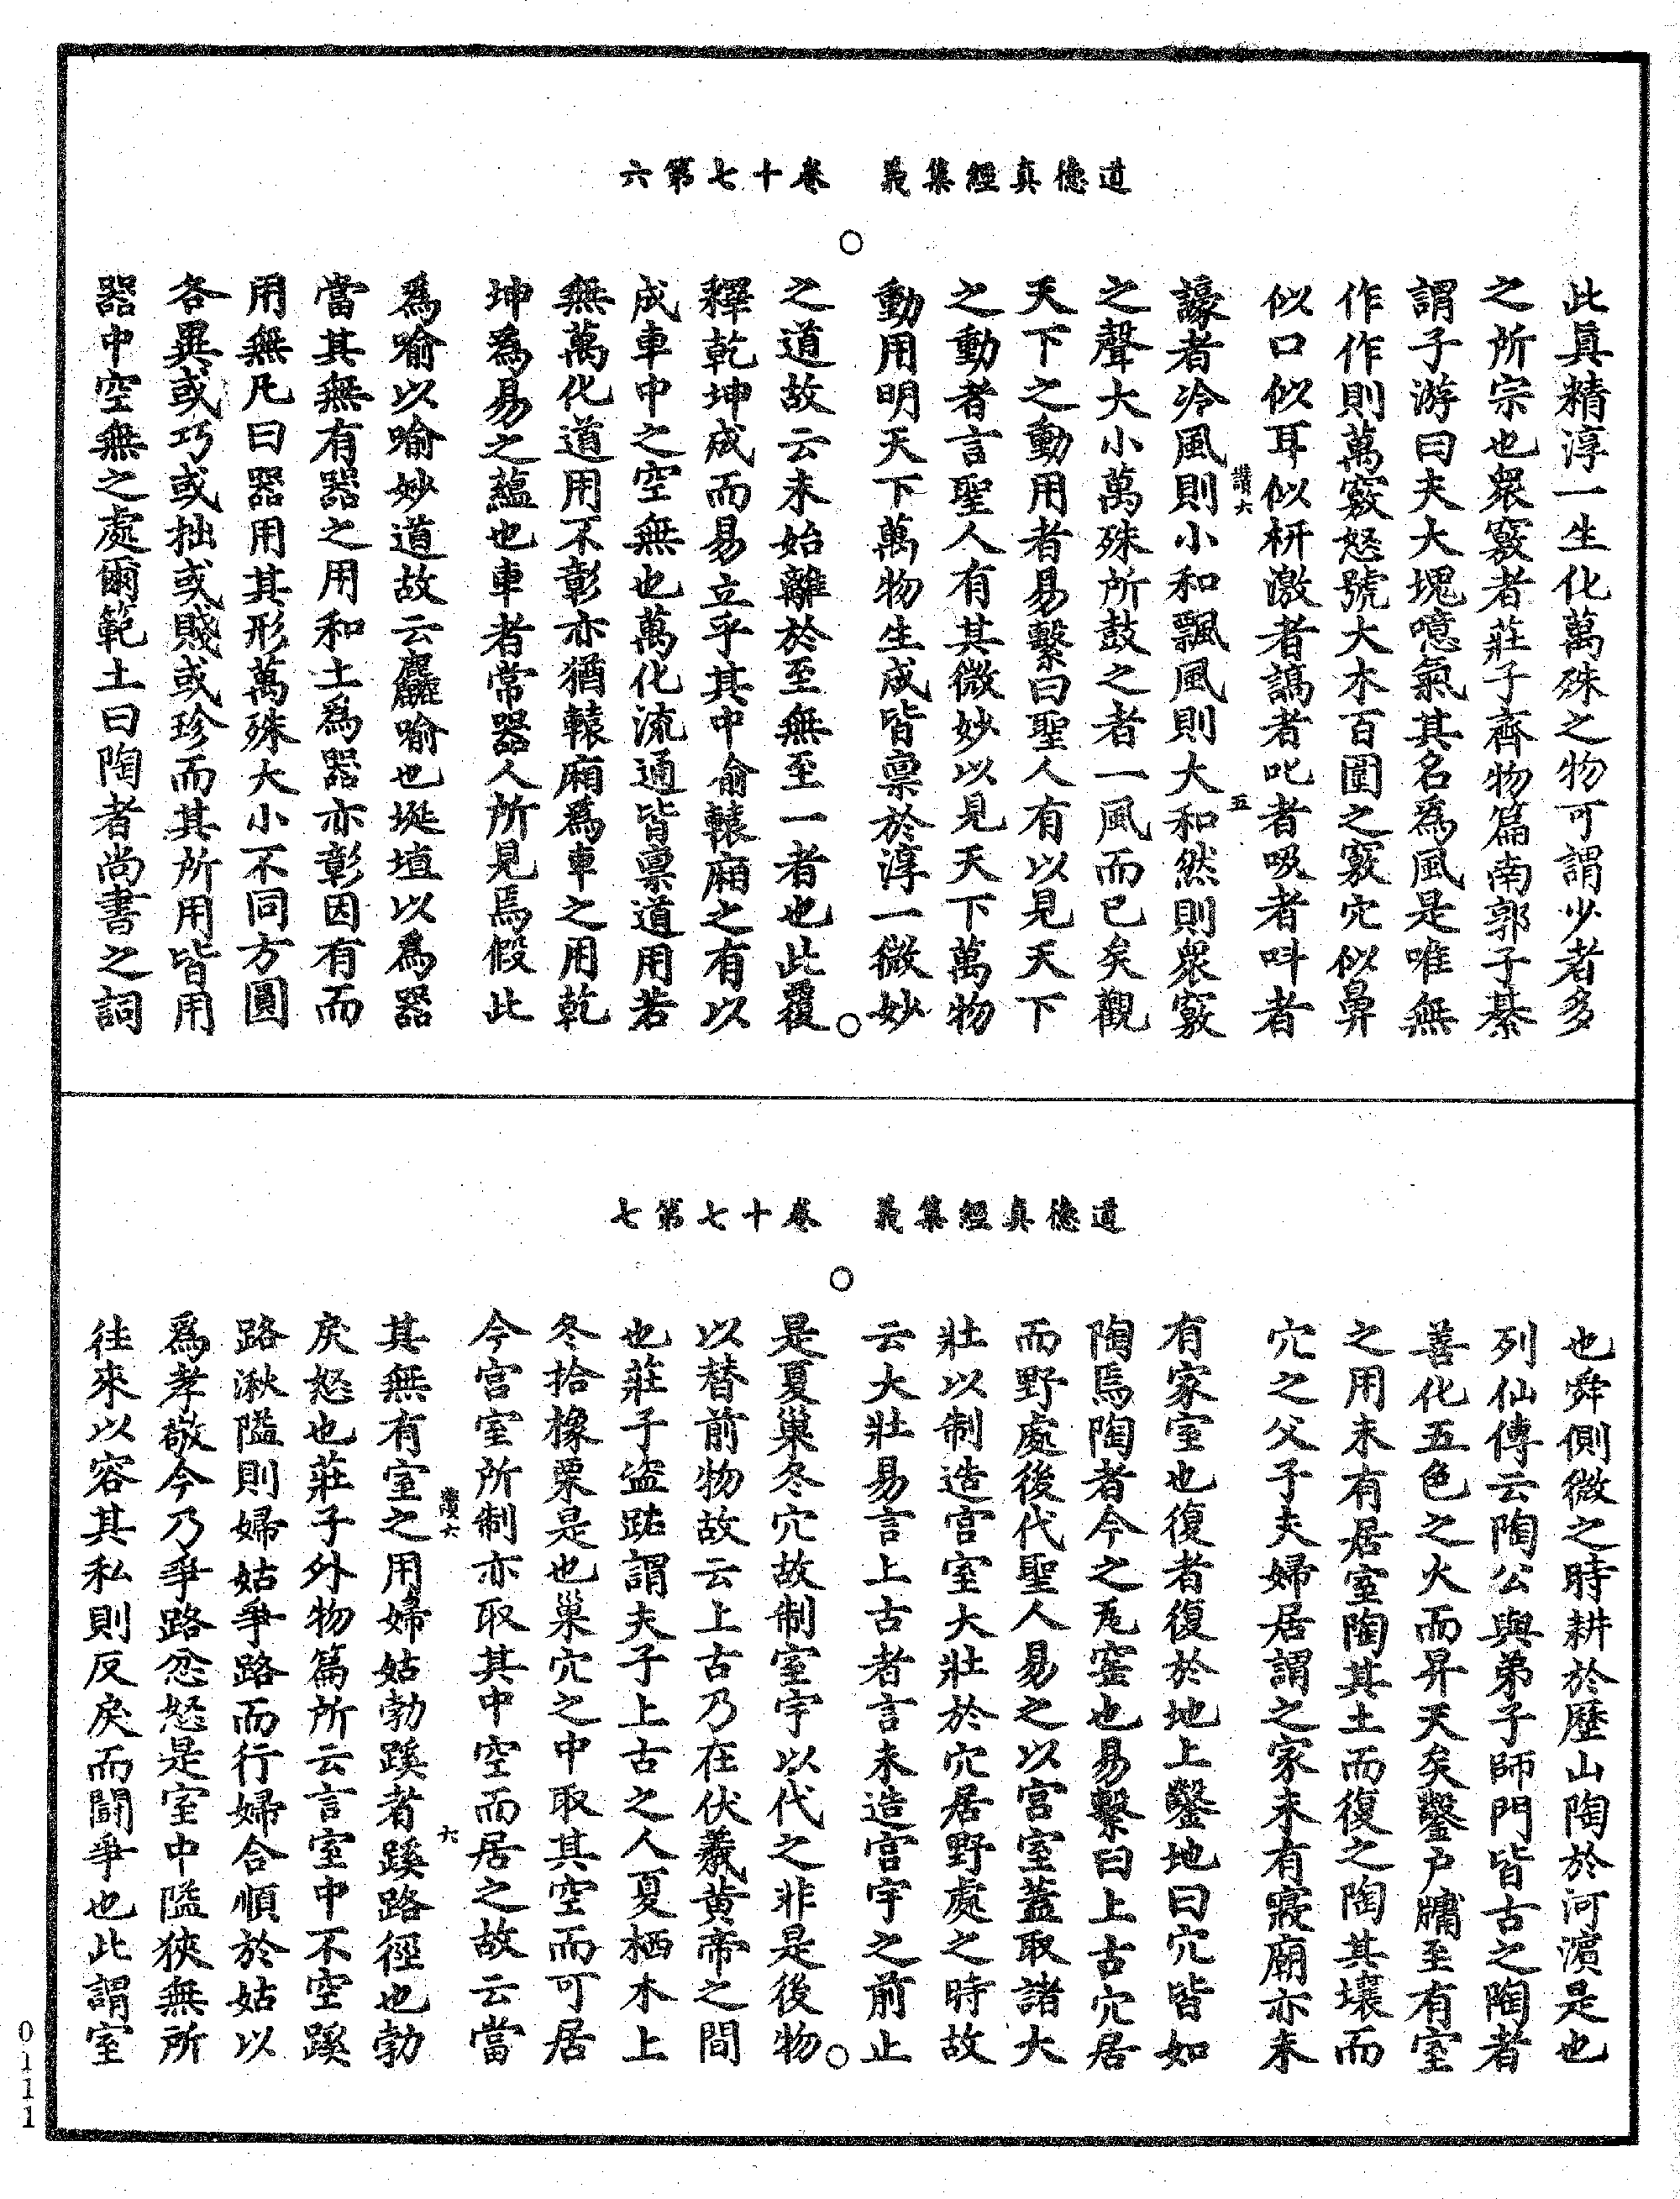 道德真經集義　卷十七第六
此真精淳一生化萬殊之物可謂少者多
之所宗也衆竅者莊子齊物篇南郭子綦
謂子游曰夫大塊噫氣其名爲風是唯無
作作則萬竅怒號大木百圍之竅穴似鼻
似口似耳似枅激者謞者叱者吸者叫者
讀六　五
譹者泠風則小和飄風則大和然則衆竅
之聲大小萬殊所鼓之者一風而已矣觀
天下之動用者易繫曰聖人有以見天下
之動者言聖人有其微妙以見天下萬物
動用明天下萬物生成皆稟於淳一微妙
之道故云未始離於至無至一者也此覆
釋乾坤成而易立乎其中俞轅廂之有以
成車中之空無也萬化流通皆稟道用若
無萬化道用不彰亦猶轅廂爲車之用乾
坤爲易之蘊也車者常器人所見焉假此
爲喻以喻妙道故云麤喻也埏埴以爲器
當其無有器之用和土爲器亦彰因有而
用無凡曰器用其形萬殊大小不同方圓
各異或巧或拙或賤或珍而其所用皆用
器中空無之處爾範土曰陶者尚書之詞
道德真經集義　卷十七第七
也舜側微之時耕於歷山陶於河濱是也
列仙傳云陶公與弟子師門皆古之陶者
善化五色之火而昇天矣鑿戶牖至有室
之用未有居室陶其土而復之陶其壤而
穴之父子夫婦居謂之家未有寢廟亦未
有家室也復者復於地上鑿地曰穴皆如
陶焉陶者今之瓦窑也易繫曰上古穴居
而野處後代聖人易之以宮室蓋取諸大
壯以制造宮室大壯於穴居野處之時故
云大壯易言上古者言未造宮宇之前止
是夏巢冬穴故制室宇以代之非是後物
以替前物故云上古乃在伏羲黃帝之間
也莊子盜跖謂夫子上古之人夏栖木上
冬拾橡栗是也巢穴之中取其空而可居
今宮室所制亦取其中空而居之故云當
讀六　六
其無有室之用婦姑勃蹊者蹊路徑也勃
戾怒也莊子外物篇所云言室中不空蹊
路湫隘則婦姑爭路而行婦合順於姑以
爲孝敬今乃爭路忿怒是室中隘狹無所
往來以容其私則反戾而鬪爭也此謂室
0111